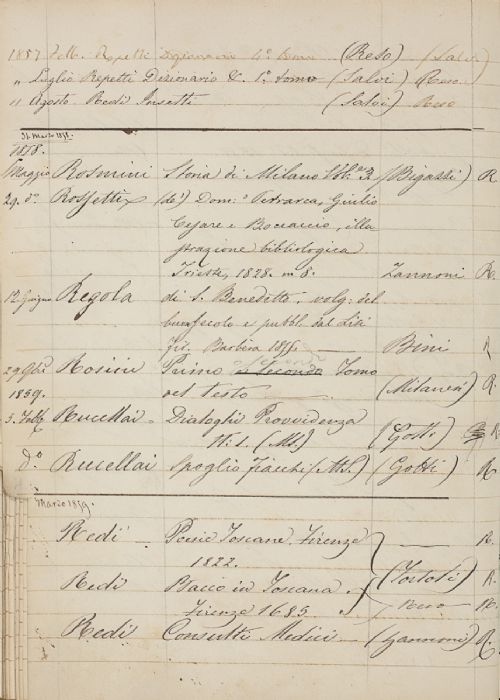 1857 Febb. Repetti Dizionario 4º tomo (Reso) (Salvi)
" Luglio Repetti Dizionario &. 1º tomo (Salvi) Reso
" Agosto Redi Insetti (Salvi) Reso
31. Marzo 1858.
1858.
Maggio Rosmini Storia di Milano 3 (Bigazzi) R.
29. dº. Rossetti (de') Dom: Petrarca, Giulio
Cesare e Boccaccio, illu
strazione bibliologica
Trieste, 1828. in 8. Zannoni R.
12. Giugno Regola di S. Benedetto. volg: del
buon secolo e pubbl. dal
Fir. Barbèra 1855. — Bini R
29 9bre Rosini Primo e Secondo Tomo
1859. del testo — (Milanesi) R.
5. Febb. Rucellai. Dialoghi Provvidenza
(Ms.) (Gotti) R.
dº. Rucellai Spoglio Fiacchi (Ms.) (Gotti) R
Marzo 1859.
Redi — Poesie Toscane, Firenze — R.
1822.
Redi Bacco in Toscana. (Tortoli) R.
Firenze 1685. Reso R.
Redi Consulti Medici — (Zannoni) R.